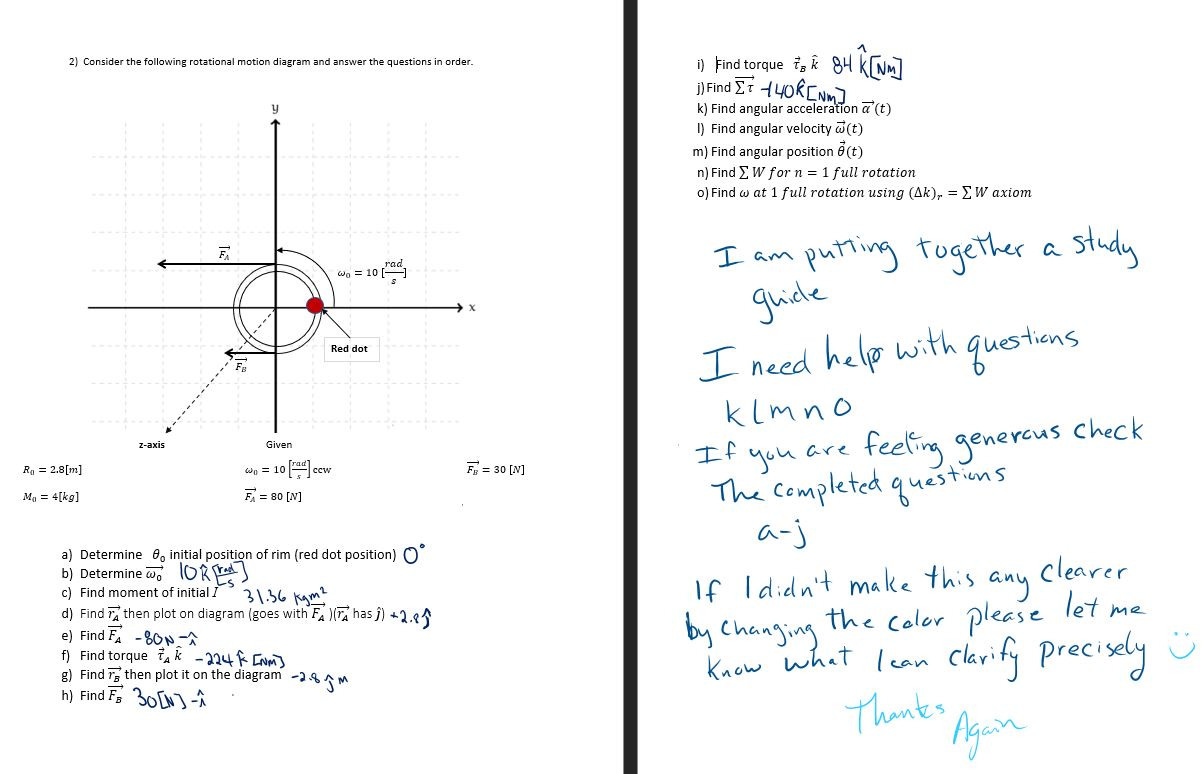 2) Consider the following rotational motion diagram and answer the questions in order.
y
F_A
ω₀ = 10 [rad/s]
x
Red dot
F_B
z-axis
Given
R₀ = 2.8[m]
ω₀ = 10 [rad/s] ccw
F_B = 30 [N]
M₀ = 4[kg]
F_A = 80 [N]
a) Determine θ₀ initial position of rim (red dot position) 0°
b) Determine ω₀ 10 k̂ [rad/s]
c) Find moment of initial I 31.36 kgm²
d) Find r_A then plot on diagram (goes with F_A )(r_A has ĵ) +2.8ĵ
e) Find F_A -80N -î
f) Find torque τ_A k̂ -224 k̂ [Nm]
g) Find r_B then plot it on the diagram -2.8 ĵ m
h) Find F_B 30[N] -î
i) Find torque τ_B k̂ 84 k̂ [Nm]
j) Find ∑τ 140k̂ [Nm]
k) Find angular acceleration α (t)
l) Find angular velocity ω(t)
m) Find angular position θ(t)
n) Find ∑ W for n = 1 full rotation
o) Find ω at 1 full rotation using (Δk)ᵣ = ∑ W axiom
I am putting together a study
guide
I need help with questions
k l m n o
If you are feeling generous check
The completed questions
a-j
If I didn't make this any clearer
by changing the color please let me
know what I can clarify precisely
Thanks
Again